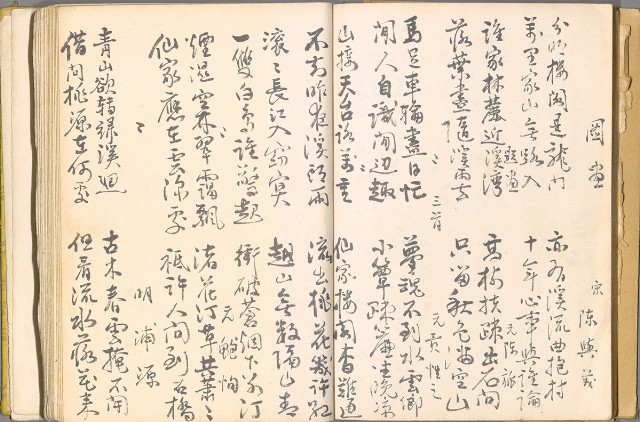 圖畫 宋 陳與義
分明樓閣是龍門 亦有溪流曲抱村
萬里家山無路入 十年心事與誰論
題畫 元 陳旅
誰家林麓近溪灣 高樹扶疎出石間
落葉盡隨溪雨去 只留秋色滿空山
〻 三首 元 貢性之
馬足車輪盡日忙 夢魂不到水雲鄉
閒人自識閒邊趣 小簟疎簾坐晚涼
〻
山接天台路萬重 仙家樓閣杳難通
不知昨夜溪頭雨 流出桃花幾許紅
〻
滾〻長江入窈冥 越山無數隔江青
一雙白鳥誰驚起 衝破蒼烟下別汀
〻 元 鮑恂
煙濕空林翠靄飄 渚花汀草共蕭〻
仙家應在雲深處 祗許人間到石橋
〻 明 浦源
青山欲轉綠溪迴 古木春雲掩不開
借問桃源在何處 但看流水落花來